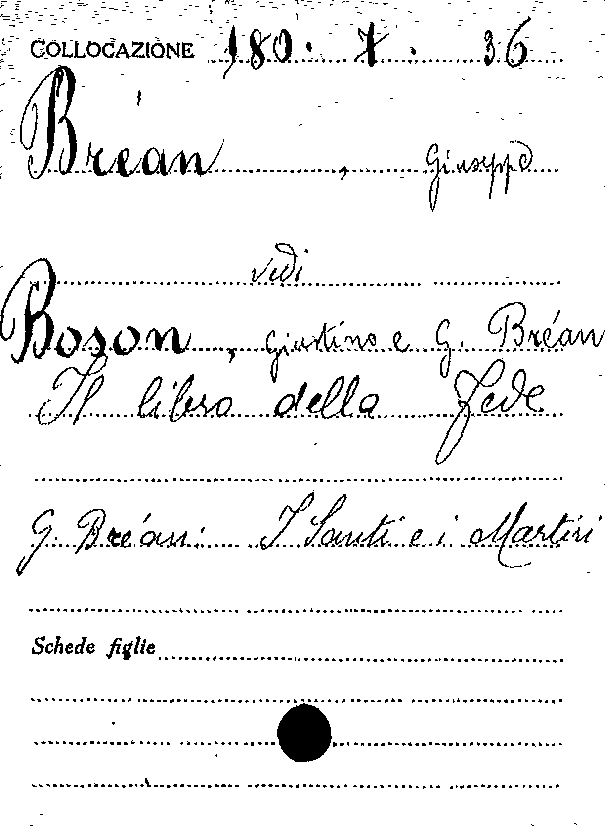 COLLOCAZIONE 180. 7. 36
Bréan, Giuseppe
vedi
Boson, Giustino e G. Bréan
Il libro della Fede
G. Bréan: I Santi e i Martiri
Schede figlie